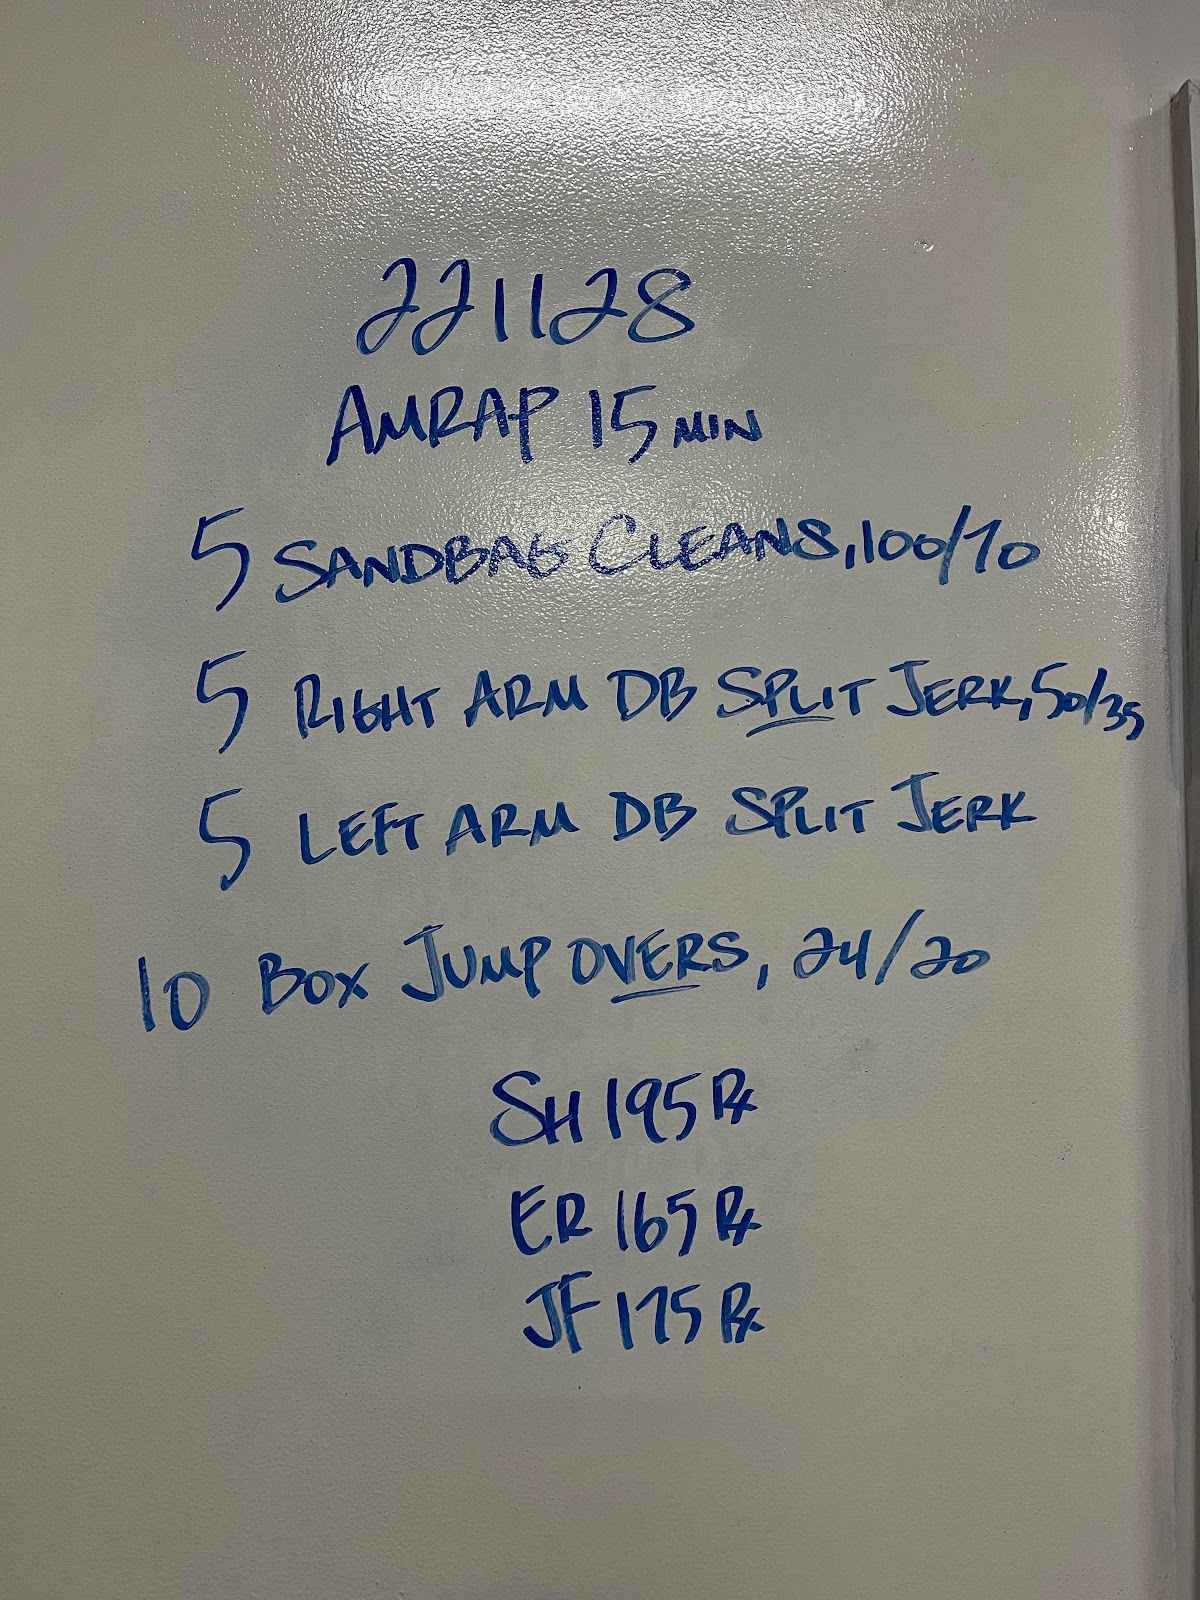 221128
AMRAP 15 MIN
5 SANDBAG CLEANS, 100/70
5 RIGHT ARM DB SPLIT JERK, 50/35
5 LEFT ARM DB SPLIT JERK
10 BOX JUMP OVERS, 24/20
SH 195 Rx
ER 165 Rx
JF 175 Rx